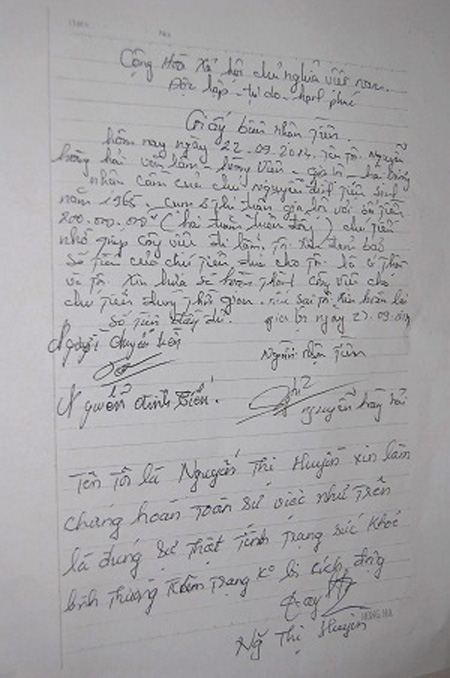 Cộng Hòa Xã hội chủ nghĩa việt nam.
Độc lập - tự do - hạnh phúc
Giấy biên nhận tiền.
hôm nay ngày 22.09.2012. Tên Tôi. Nguyễn
hồng hải
nhận cầm của chú nguyễn đình tiến sinh
năm 1965. với số tiền
200.000.000đ (hai trăm triệu đồng) chú tiến
nhờ giúp công việc đi làm, Tôi xin đảm bảo
Số tiền của chú tiến đưa cho tôi. là
và tôi Xin hứa sẽ hoàn thành công việc cho
chú tiến đúng thời gian. nếu sai tôi xin hoàn lại
Số tiền đầy đủ. ngày 22.09.2012
Người chuyển tiền
Người nhận tiền
Nguyễn đình tiến.
nguyễn hồng hải
Tên Tôi là Nguyễn Thị Huyền xin làm
chứng hoàn toàn sự việc như trên
là đúng sự thật tình trạng sức khỏe
bình thường tâm trạng ko bị kích động
Ng Thị Huyền
HONG HA